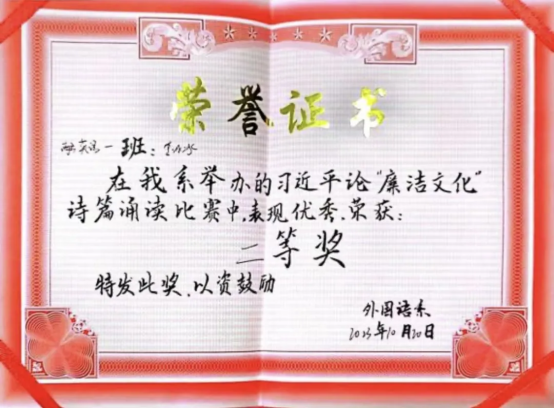 荣誉证书
一班:
在我系举办的习近平论“廉洁文化”
诗篇诵读比赛中,表现优秀.荣获:
二等奖
特发此奖,以资鼓励
外国语系
2023年10月20日